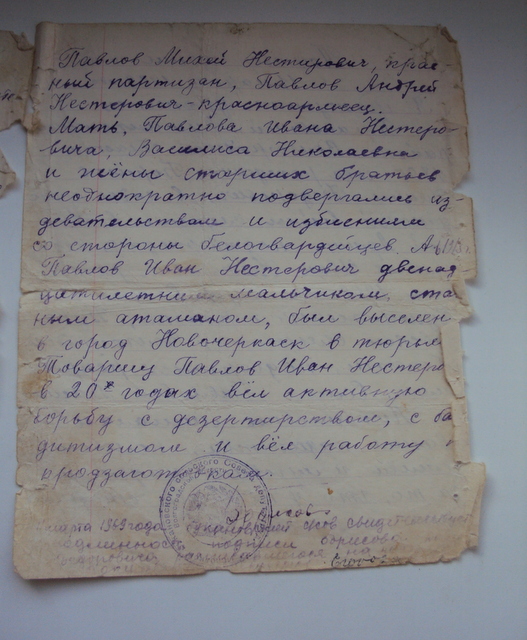 Павлов Михей Нестирович, крас-
ный партизан, Павлов Андрей
Нестерович-красноармеец.
Мать, Павлова Ивана Нестеро-
вича, Василиса Николаевна
и жёны старших братьев
неоднократно подвергались из-
девательствам и избиениям
со стороны белогвардейцев. А
Павлов Иван Нестерович двенад
цатилетним мальчиком, ста
ным атаманом, был выселен
в город Новочеркаск в тюрьм
Товарищ Павлов Иван Нестеро
в 20х годах вёл активную
борьбу с дезертирством, с ба
дитизмом и вёл работу
продзаготовкам.
марта 1969 года
подлинность подписи Борисова